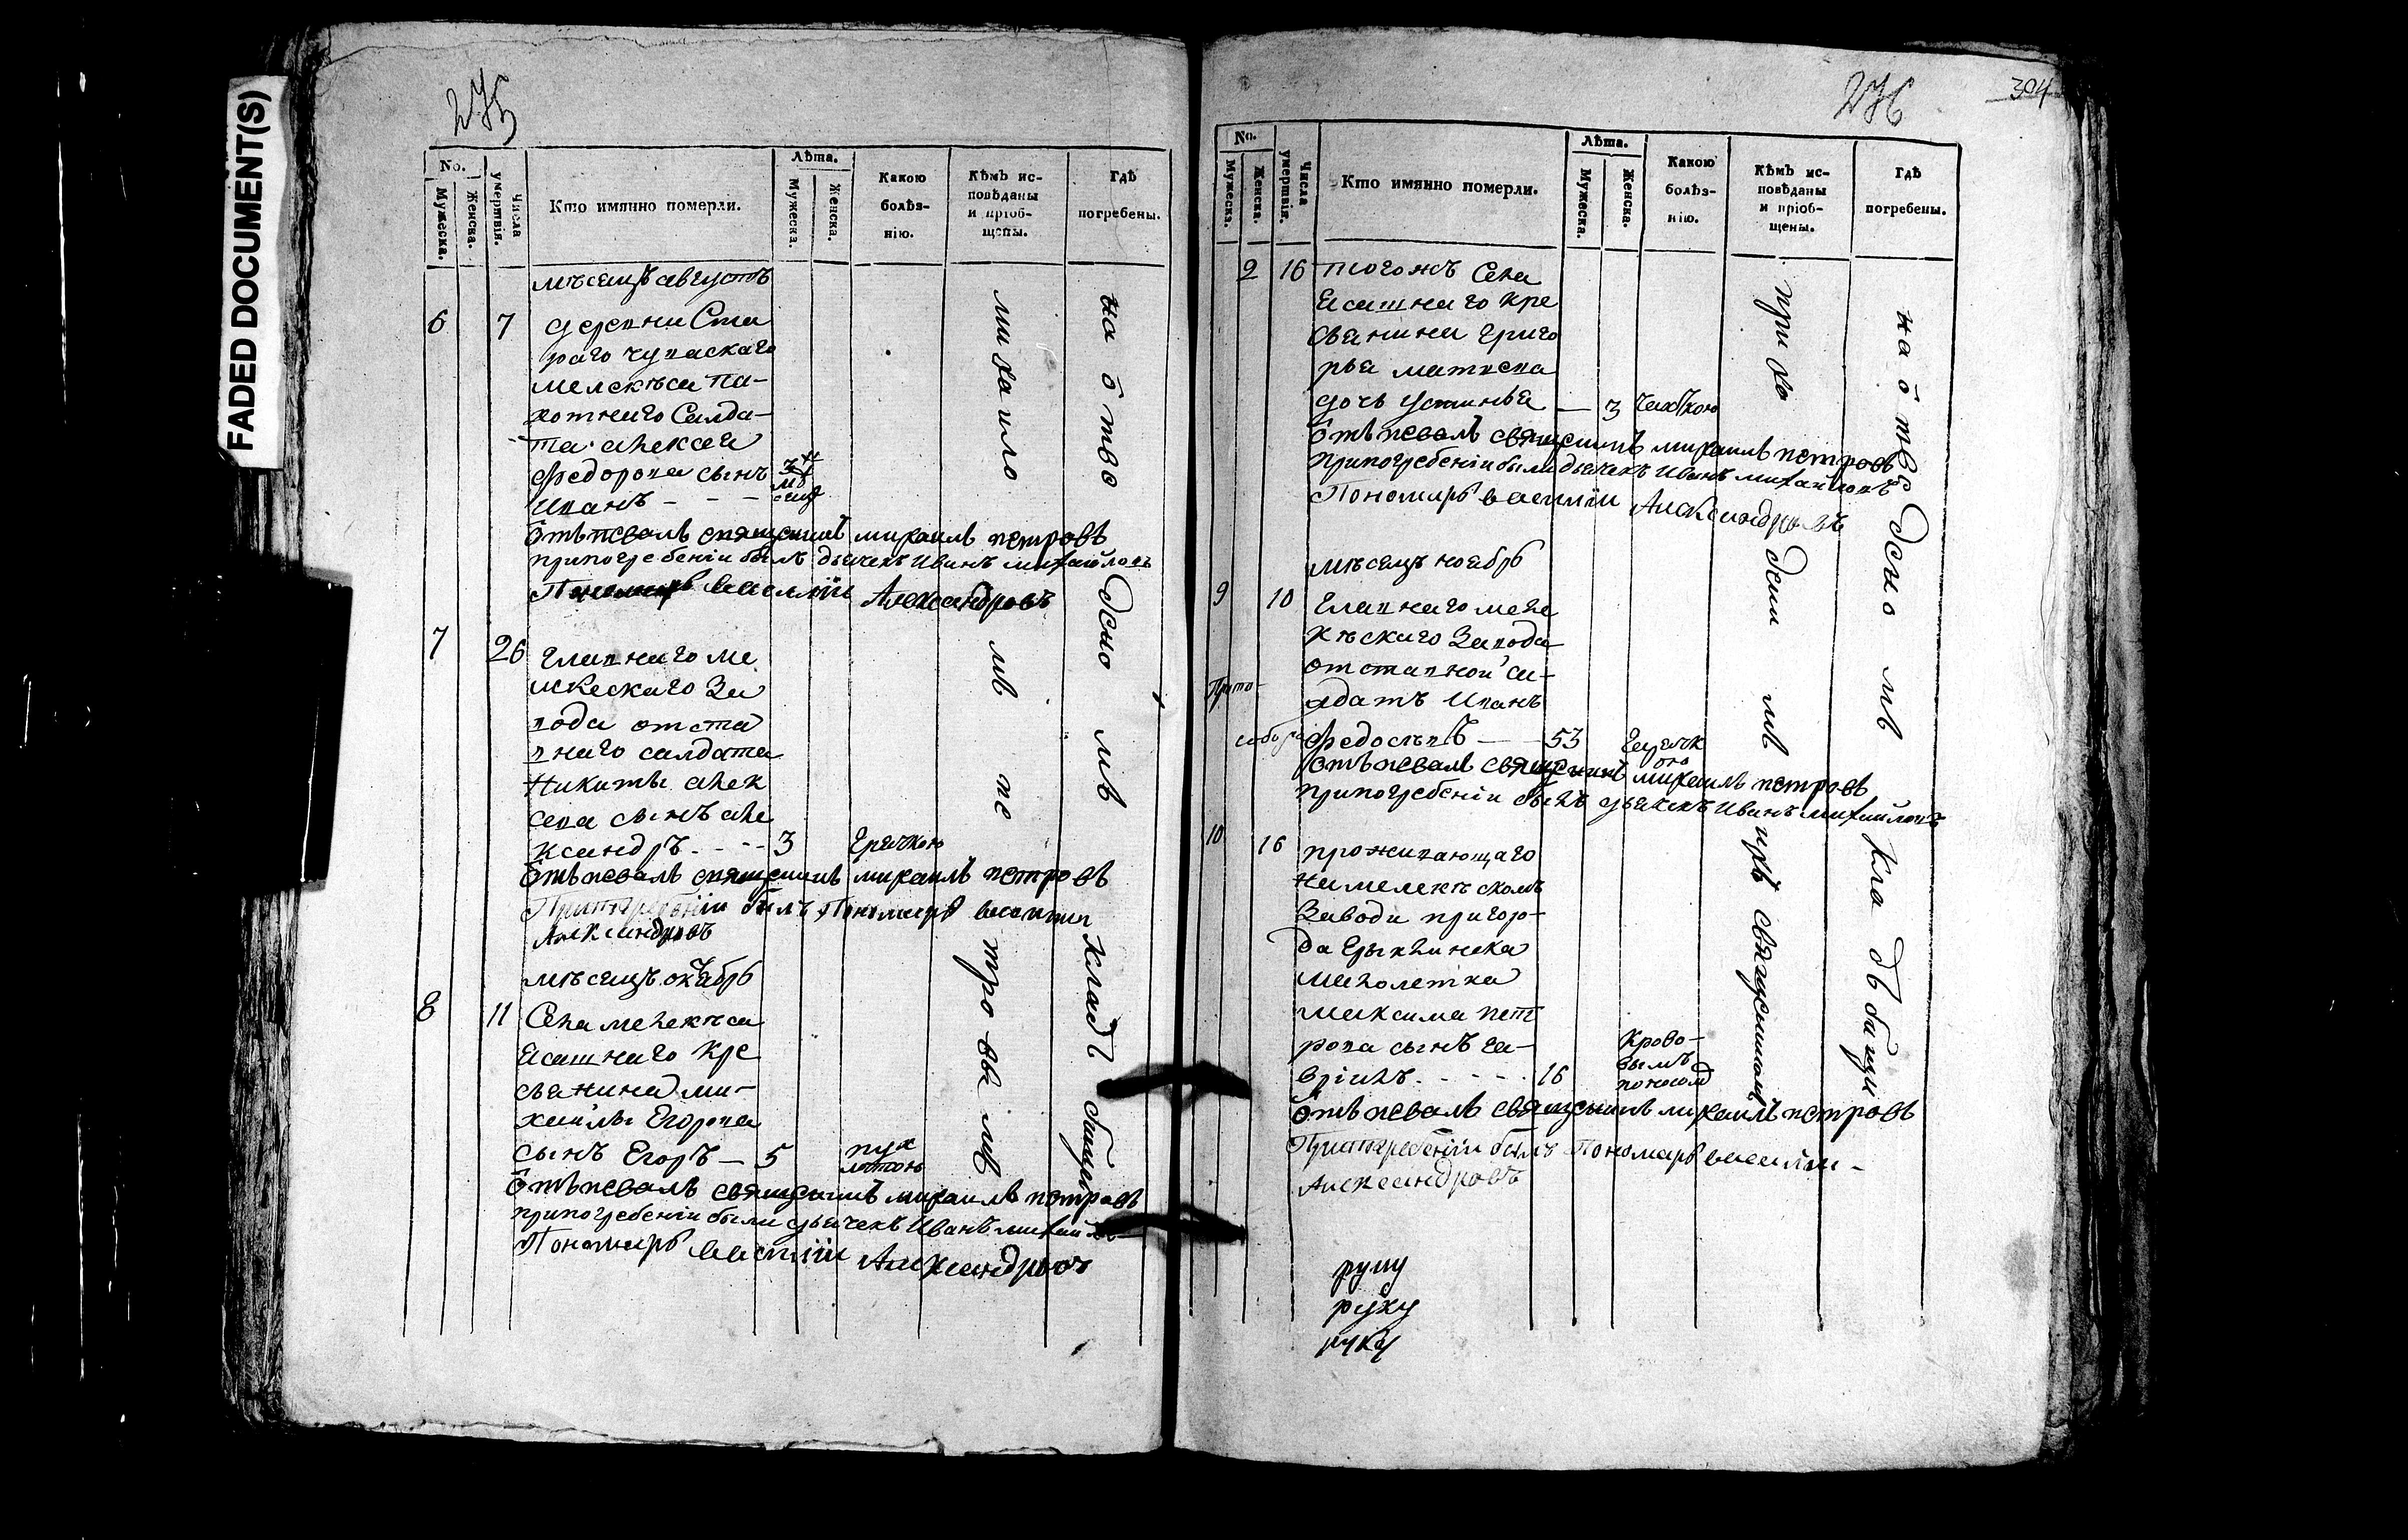 FADED DOCUMENT(S)
275
No.
Мужеска.
Женска.
Числа умертвія.
Кто имянно померли.
Лѣта.
Мужеска.
Женска.
Какою
болѣз-
нію.
Кѣмъ ис-
повѣданы
и пріоб-
щены.
Гдѣ
погребены.
мѣсяцъ августъ
6 7 деревни Ста
раго
мелекеса па-
хотнаго Салда-
та алексея
федорова сынъ
иванъ - - -
отъпевалъ священникъ михаилъ петровъ
припогребеніи былъ дьячекъ иванъ михайловъ
Пономарь василіи Александровъ
7 26 главнаго ме
лекескаго За
вода отста
внаго салдата
Никиты алек
сева сынъ але
ксандръ - - - 3 горячкою
отъпевалъ священникъ михаилъ петровъ
Припогребеніи былъ Пономарь василіи
Александровъ
мѣсяцъ октябрь
8 11 Села мелекеса
ясашнаго кре
стьянина ми-
хайлы Егорова
сынъ Егоръ — 5
отъпевалъ священникъ михаилъ петровъ
припогребеніи были дьячекъ Иванъ михайло
Пономарь василіи Александровъ
михаиломъ петровымъ
на отведеномъ кладбище
276
304
No.
Мужеска.
Женска.
Числа умертвія.
Кто имянно померли.
Лѣта.
Мужеска.
Женска.
Какою
болѣз-
нію.
Кѣмъ ис-
повѣданы
и пріоб-
щены.
Гдѣ
погребены.
2 16 тогожъ Села
ясашнаго кре
стьянина григо
рья матвева
дочь устинья — 3 чахоткою
отъпевалъ священникъ михаилъ петровъ
Припогребеніи были дьячекъ Иванъ михайловъ
Пономарь василіи Александровъ
мѣсяцъ ноябрь
9 10 главнаго меле
кескаго Завода
отставной са-
лдатъ иванъ
федосеевъ — 53 горячк
ою
отъпевалъ священникъ михаилъ петровъ
припогребеніи былъ дьячекъ Иванъ михайловъ
10 16 проживающаго
на мелекескомъ
Заводи пригоро-
да Ерыклинска
малолетка
максима пет
рова сынъ га-
вріилъ - - - - 16 крово-
вымъ
поносомъ
отъпевалъ священникъ михаилъ петровъ
Припогребеніи былъ Пономарь василіи
Александровъ
приходскимъ священникомъ
на отведеномъ кладбищи
руку